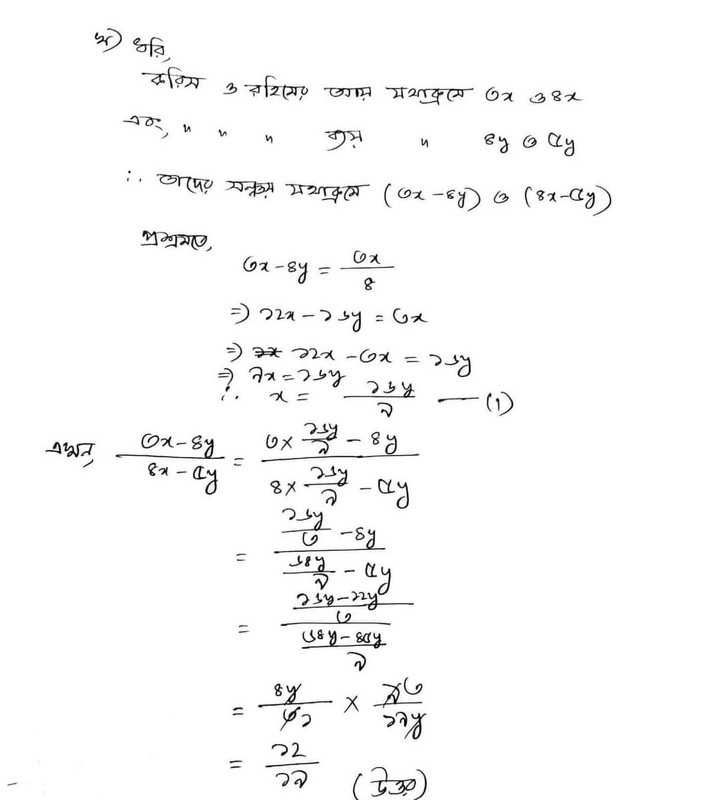 খ) ধরি,
করিম ও রহিমের আয় যথাক্রমে ৩x ও ৪x
এবং, " " " ব্যয় " ৪y ও ৫y
∴ তাদের সঞ্চয় যথাক্রমে (৩x-৪y) ও (৪x-৫y)
প্রশ্নমতে,
৩x-৪y = ৩x/৪
=> ১২x - ১৬y = ৩x
=> ১২x - ৩x = ১৬y
=> ৯x = ১৬y
∴ x = ১৬y/৯ — (1)
এখন, (৩x-৪y)/(৪x-৫y) = (৩×১৬y/৯ - ৪y)/(৪×১৬y/৯ - ৫y)
= (১৬y/৩ - ৪y)/(৬৪y/৯ - ৫y)
= ((১৬y-১২y)/৩)/((৬৪y-৪৫y)/৯)
= ৪y/৩ × ৯/১৯y
= ১২/১৯ (উত্তর)